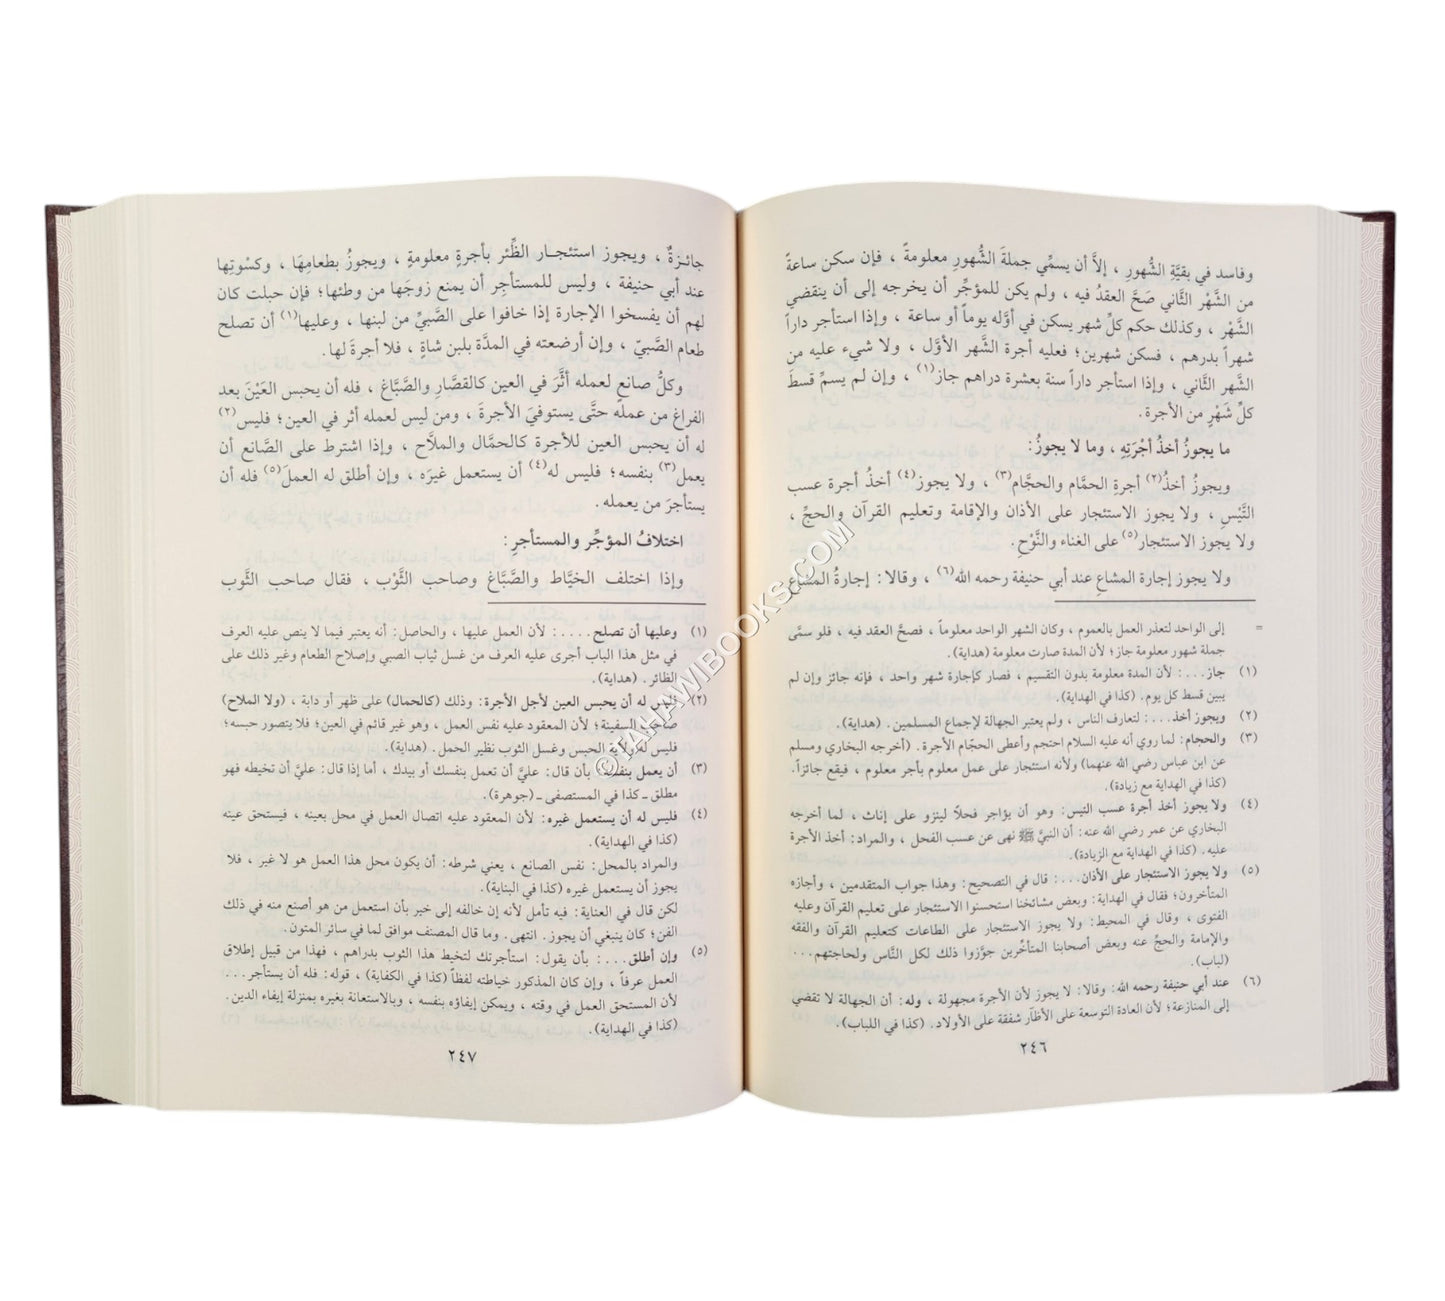 وفاسد في بقيَّةِ الشُّهورِ ، إلاَّ أن يسمِّي جملةَ الشُّهورِ معلومةً ، فإن سكن ساعةً
من الشَّهْر الثَّاني صَحَّ العقدُ فيه ، ولم يكن للمؤجِّر أن يخرجه إلى أن ينقضي
الشَّهْر ، وكذلك حكم كلِّ شهر يسكن في أوَّله يوماً أو ساعة ، وإذا استأجر داراً
شهراً بدرهم ، فسكن شهرين؛ فعليه أجرة الشَّهر الأوَّل ، ولا شيء عليه من
الشَّهر الثَّاني ، وإذا استأجر داراً سنة بعشرة دراهم جاز(١) ، وإن لم يسمِّ قسطَ
كلِّ شَهْرٍ من الأجرة.
ما يجوزُ أخذُ أجْرَتِهِ ، وما لا يجوزُ:
ويجوز أخذُ(٢) أجرةِ الحمَّام والحجَّام(٣) ، ولا يجوز(٤) أخذُ أجرة عسب
التَّيْسِ ، ولا يجوز الاستئجار على الأذان والإقامة وتعليم القرآن والحجِّ ،
ولا يجوز الاستئجار(٥) على الغناء والنَّوْحِ.
ولا يجوز إجارة المشاعِ عند أبي حنيفة رحمه الله(٦) ، وقالا: إجارةُ المشاعِ
= إلى الواحد لتعذر العمل بالعموم ، وكان الشهر الواحد معلوماً ، فصحَّ العقد فيه ، فلو سمَّى
جملة شهور معلومة جاز؛ لأن المدة صارت معلومة (هداية).
(١) جاز. . . : لأن المدة معلومة بدون التقسيم ، فصار كإجارة شهر واحد ، فإنه جائز وإن لم
يبين قسط كل يوم. (كذا في الهداية).
(٢) ويجوز أخذ. . . : لتعارف الناس ، ولم يعتبر الجهالة لإجماع المسلمين. (هداية).
(٣) والحجام: لما روي أنه عليه السلام احتجم وأعطى الحجّام الأجرة. (أخرجه البخاري ومسلم
عن ابن عباس رضي الله عنهما) ولأنه استئجار على عمل معلوم بأجر معلوم ، فيقع جائزاً.
(كذا في الهداية مع زيادة).
(٤) ولا يجوز أخذ أجرة عسب التيس: وهو أن يؤاجر فحلاً لينزو على إناث ، لما أخرجه
البخاري عن عمر رضي الله عنه: أن النبيَّ ﷺ نهى عن عسب الفحل ، والمراد: أخذ الأجرة
عليه. (كذا في الهداية مع الزيادة).
(٥) ولا يجوز الاستئجار على الأذان. . . : قال في التصحيح: وهذا جواب المتقدمين ، وأجازه
المتأخرون؛ فقال في الهداية: وبعض مشائخنا استحسنوا الاستئجار على تعليم القرآن وعليه
الفتوى ، وقال في المحيط: ولا يجوز الاستئجار على الطاعات كتعليم القرآن والفقه
والإمامة والحجِّ عنه وبعض أصحابنا المتأخّرين جوَّزوا ذلك لكل النَّاس ولحاجتهم...
(لباب).
(٦) عند أبي حنيفة رحمه الله: وقالا: لا يجوز لأن الأجرة مجهولة ، وله: أن الجهالة لا تفضي
إلى المنازعة؛ لأن العادة التوسعة على الأظآر شفقة على الأولاد. (كذا في اللباب).
٢٤٦
جائـزةٌ ، ويجوز استئجـار الظِّئر بأجرةٍ معلومةٍ ، ويجوزُ بطعامِهَا ، وكسْوتِها
عند أبي حنيفة ، وليس للمستأجِر أن يمنع زوجَها من وطئها؛ فإن حبلت كان
لهم أن يفسخوا الإجارة إذا خافوا على الصَّبيِّ من لبنها ، وعليها(١) أن تصلح
طعام الصَّبيّ ، وإن أرضعته في المدَّة بلبن شاةٍ ، فلا أجرةَ لها.
وكلُّ صانع لعمله أثَّرَ في العين كالقصَّارِ والصَّبَّاغ ، فله أن يحبس العَيْنَ بعد
الفراغ من عمله حتَّى يستوفيَ الأجرةَ ، ومن ليس لعمله أثر في العين؛ فليس(٢)
له أن يحبس العين للأجرة كالحمَّال والملاَّح ، وإذا اشترط على الصَّانع أن
يعمل(٣) بنفسه؛ فليس له(٤) أن يستعمل غيرَه ، وإن أطلق له العملَ(٥) فله أن
يستأجرَ من يعمله.
اختلافُ المؤجِّر والمستأجرِ:
وإذا اختلف الخيَّاط والصَّبَّاغ وصاحب الثَّوْب ، فقال صاحب الثَّوب
(١) وعليها أن تصلح. . . . : لأن العمل عليها ، والحاصل: أنه يعتبر فيما لا ينص عليه العرف
في مثل هذا الباب أجرى عليه العرف من غسل ثياب الصبي وإصلاح الطعام وغير ذلك على
الظائر. (هداية).
(٢) فليس له أن يحبس العين لأجل الأجرة: وذلك (كالحمال) على ظهر أو دابة ، (ولا الملاح)
صاحب السفينة؛ لأن المعقود عليه نفس العمل ، وهو غير قائم في العين؛ فلا يتصور حبسه؛
فليس له ولاية الحبس وغسل الثوب نظير الحمل. (هداية).
(٣) أن يعمل بنفسه: بأن قال: عليَّ أن تعمل بنفسك أو بيدك ، أما إذا قال: عليَّ أن تخيطه فهو
مطلق ـ كذا في المستصفى ـ (جوهرة).
(٤) فليس له أن يستعمل غيره: لأن المعقود عليه اتصال العمل في محل بعينه ، فيستحق عينه
(كذا في الهداية).
والمراد بالمحل: نفس الصانع ، يعني شرطه: أن يكون محل هذا العمل هو لا غير ، فلا
يجوز أن يستعمل غيره (كذا في البناية).
لكن قال في العناية: فيه تأمل لأنه إن خالفه إلى خير بأن استعمل من هو أصنع منه في ذلك
الفن؛ كان ينبغي أن يجوز. انتهى. وما قال المصنف موافق لما في سائر المتون.
(٥) وإن أطلق. . . : بأن يقول: استأجرتك لتخيط هذا الثوب بدراهم ، فهذا من قبيل إطلاق
العمل عرفاً ، وإن كان المذكور خياطته لفظاً (كذا في الكفاية) ، قوله: فله أن يستأجر...
لأن المستحق العمل في وقته ، ويمكن إيفاؤه بنفسه ، وبالاستعانة بغيره بمنزلة إيفاء الدين.
(كذا في الهداية).
٢٤٧
©TAHAWIBOOKS.COM